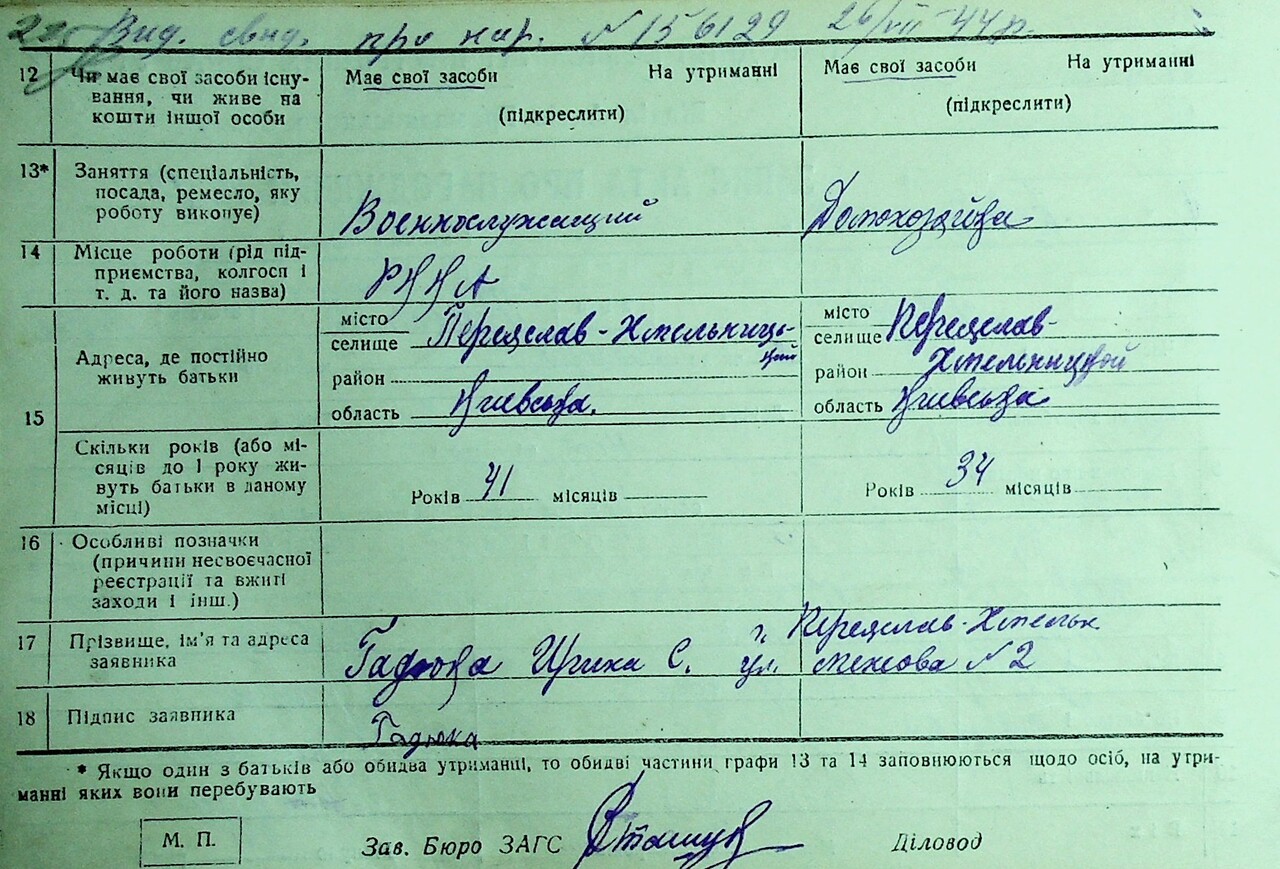 Вид. свид. про нар. № 156129 26/VII 44 р.
12 Чи має свої засоби існу-
вання, чи живе на
кошти іншої особи
Має свої засоби На утриманні
(підкреслити)
Має свої засоби На утриманні
(підкреслити)
13* Заняття (спеціальність,
посада, ремесло, яку
роботу виконує)
Военнослужащий
Домохозяйка
14 Місце роботи (рід під-
приємства, колгосп і
т. д. та його назва)
РККА
15 Адреса, де постійно
живуть батьки
місто
селище Переяслав-Хмельниць-
кий
район
область Киевська
місто Переяслав-
селище
район Хмельницкой
область Киевська
Скільки років (або мі-
сяців до 1 року жи-
вуть батьки в даному
місці)
Років 41 місяців
Років 34 місяців
16 Особливі позначки
(причини несвоєчасної
реєстрації та вжиті
заходи і інш.)
17 Прізвище, ім'я та адреса
заявника
Гадюка Ирина С. г. Переяслав-Хмельн.
ул. № 2
18 Підпис заявника
Гадюка
* Якщо один з батьків або обидва утриманці, то обидві частини графи 13 та 14 заповнюються щодо осіб, на утри-
манні яких вони перебувають
М. П.
Зав. Бюро ЗАГС
Діловод